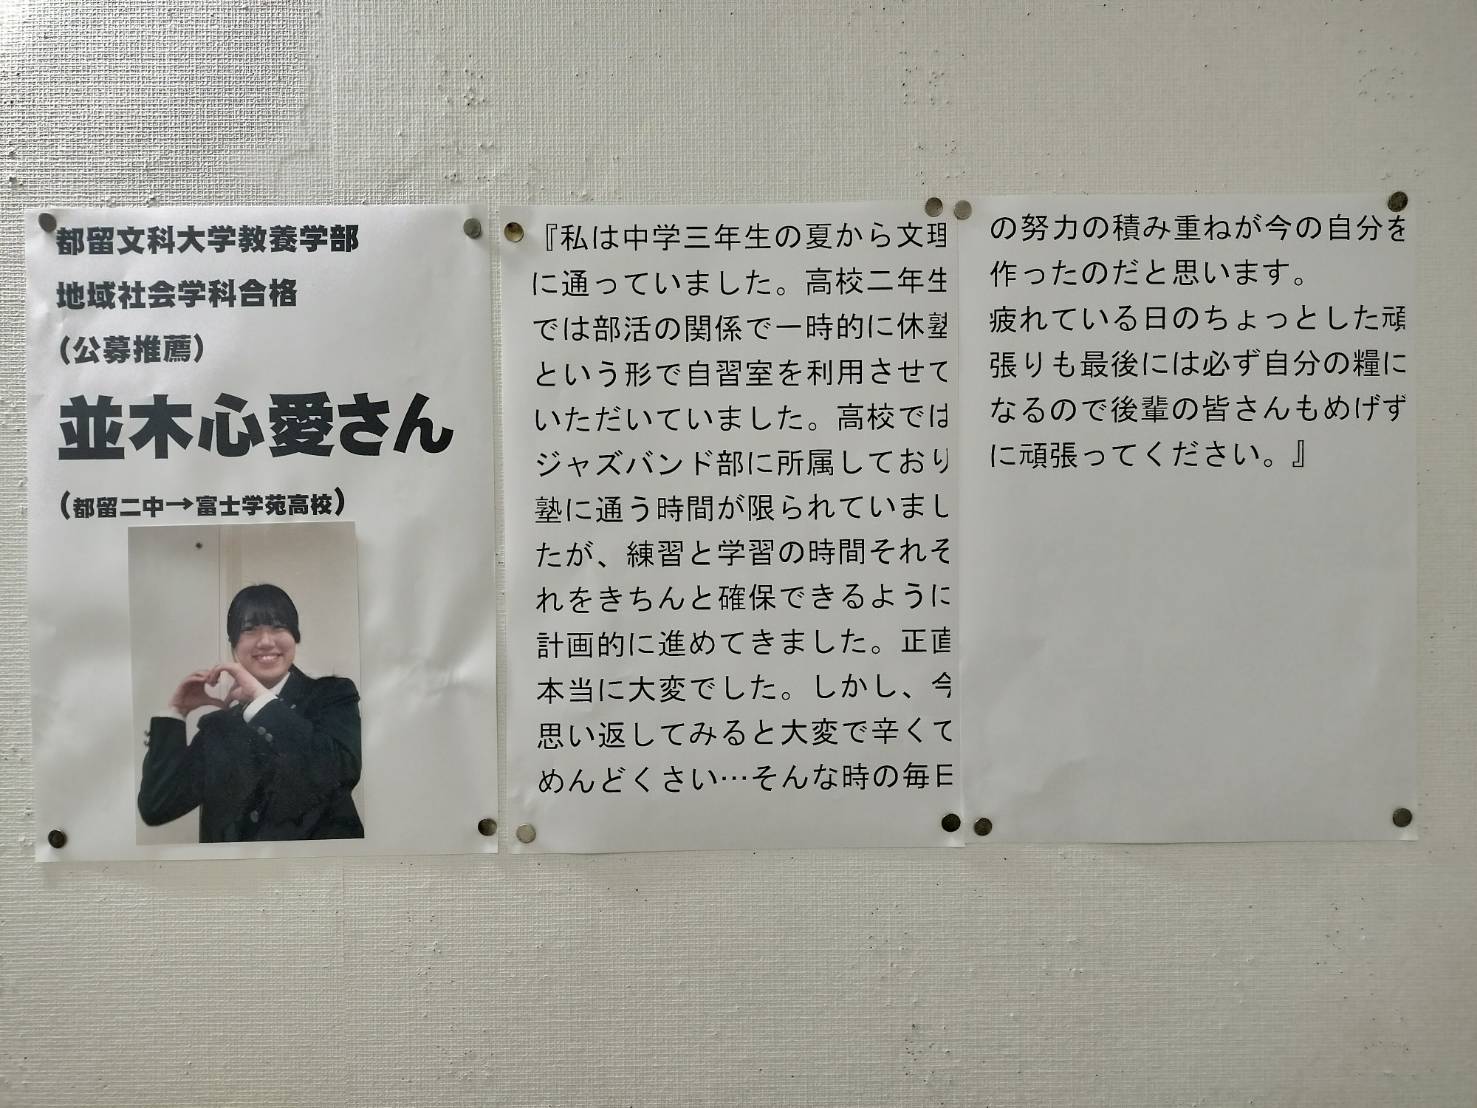 都留文科大学教養学部
地域社会学科合格
（公募推薦）
並木心愛さん
（都留二中→富士学苑高校）
『私は中学三年生の夏から文理
に通っていました。高校二年生
では部活の関係で一時的に休塾
という形で自習室を利用させて
いただいていました。高校では
ジャズバンド部に所属しており
塾に通う時間が限られていまし
たが、練習と学習の時間それぞ
れをきちんと確保できるように
計画的に進めてきました。正直
本当に大変でした。しかし、今
思い返してみると大変で辛くて
めんどくさい…そんな時の毎日
の努力の積み重ねが今の自分を
作ったのだと思います。
疲れている日のちょっとした頑
張りも最後には必ず自分の糧に
なるので後輩の皆さんもめげず
に頑張ってください。』